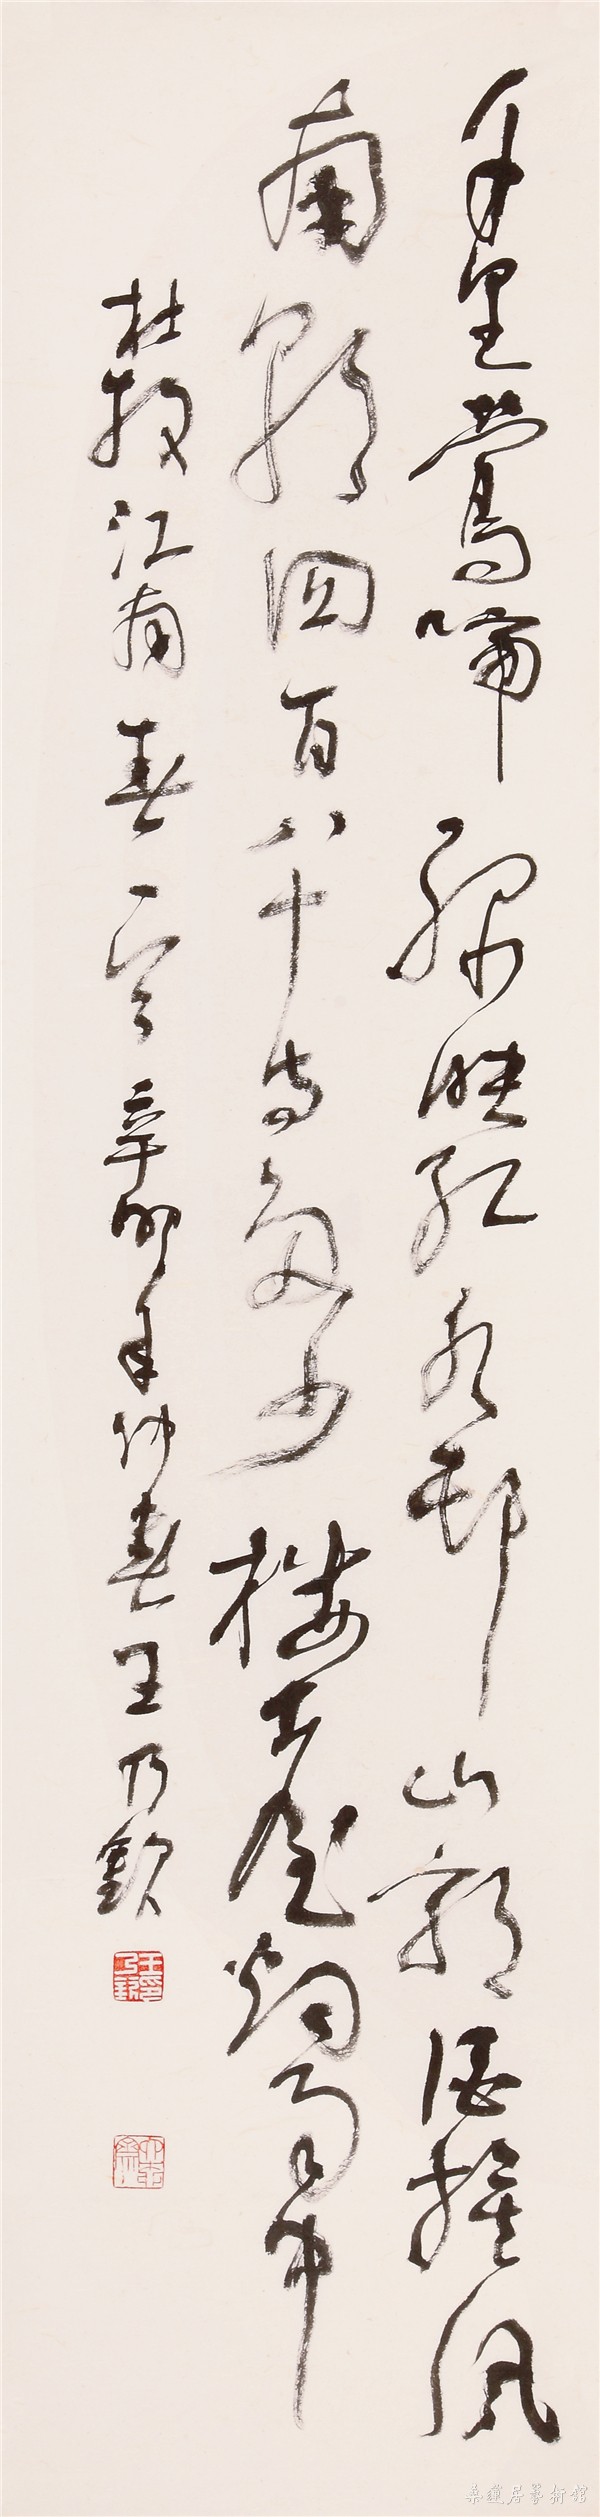 千里莺啼绿映红水邨山郭酒旗风
南朝四百八十寺多少楼台烟雨中
杜牧江南春一首辛卯年仲春王乃钦
王乃钦印
桑莲居艺术馆